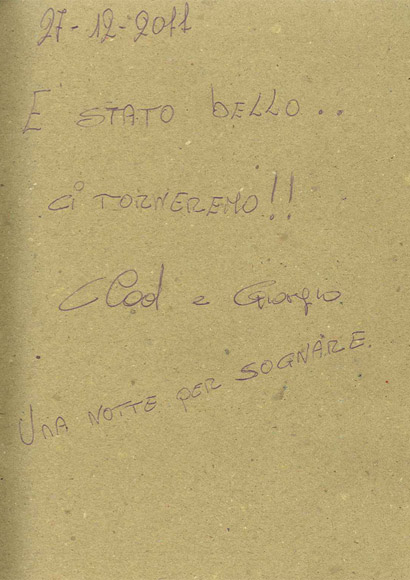 27-12-2011
E' STATO BELLO..
Ci TORNEREMO!!
Clod e Giorgio.
UNA NOTTE PER SOGNARE.